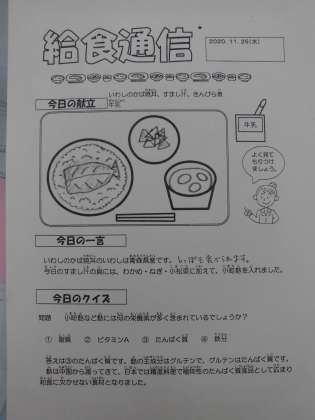 給食通信
2020.11.25(水)
いわしのかば焼丼、すまし汁、きんぴら煮
今日の献立
牛乳
牛乳
よく見て
もりつけ
ましょう。
今日の一言
いわしのかば焼丼のいわしは青森県産です。しっぽも食べられます。
今日のすまし汁の具には、わかめ・ねぎ・小松菜に加えて、小町麩を入れました。
今日のクイズ
問題 小町麩など麩には何の栄養素が多く含まれているでしょうか?
① 脂質 ② ビタミンA ③ たんぱく質 ④ 鉄分
答えは③のたんぱく質です。麩の主成分はグルテンで、グルテンはたんぱく質です。
麩は中国から渡ってきて、日本では精進料理で植物性のたんぱく質食品として広まり
和食に欠かせない食材となりました。